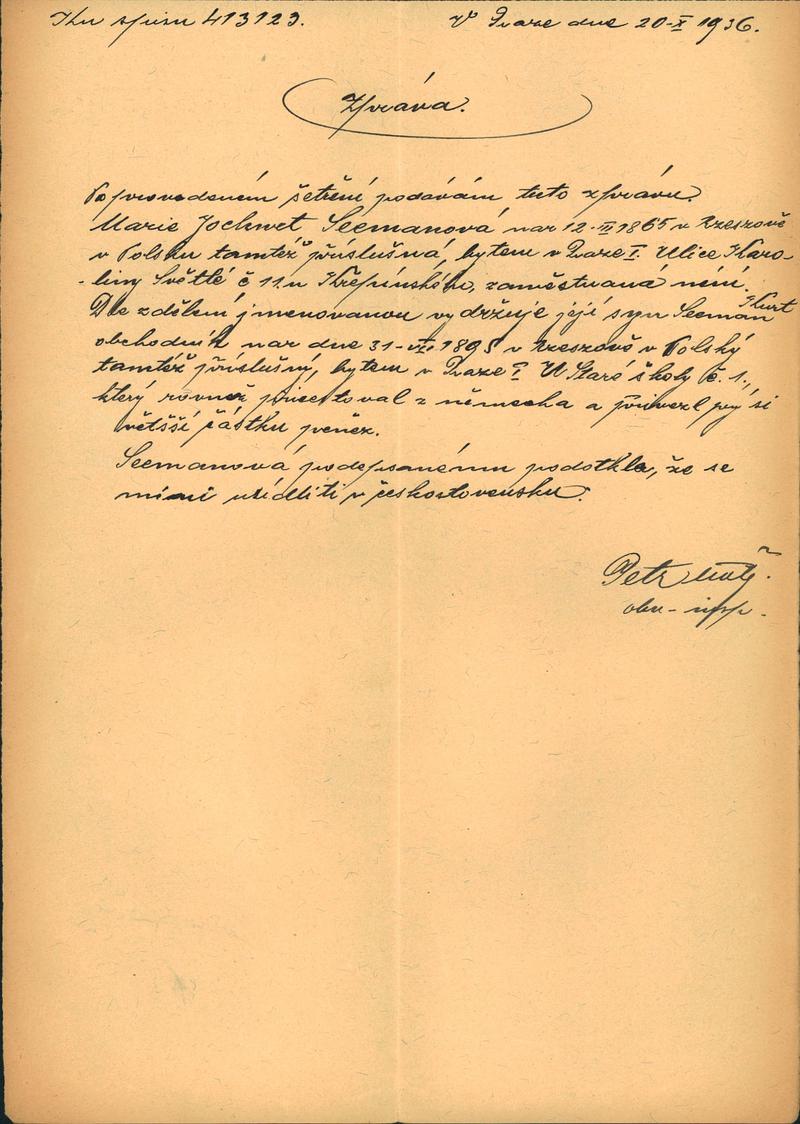 Ku spisu 413123. V Praze dne 20-X 1936.
Zpráva.
Po provedeném šetření podávám tuto zprávu.
Marie Jochwet Seemanová nar 12-II 1865 v Rzeszově
v Polsku tamtéž příslušná, bytem v Praze I. Ulice Karo-
-liny Světlé č 11.u Křepínského, zaměstnaná není.
Dle zdělení jmenovanou vydržuje její syn Seeman Kurt
obchodník nar dne 31- 1895 v Rzeszově v Polsky
tamtéž příslušný, bytem v Praze I U Staré školy č. 1.,
který rovněž přicestoval z německa a přivezl prý si
většší částku peněz.
Seemanová podepsanému podotkla, že se
míní usídliti v československu.
Petr
obv - insp.